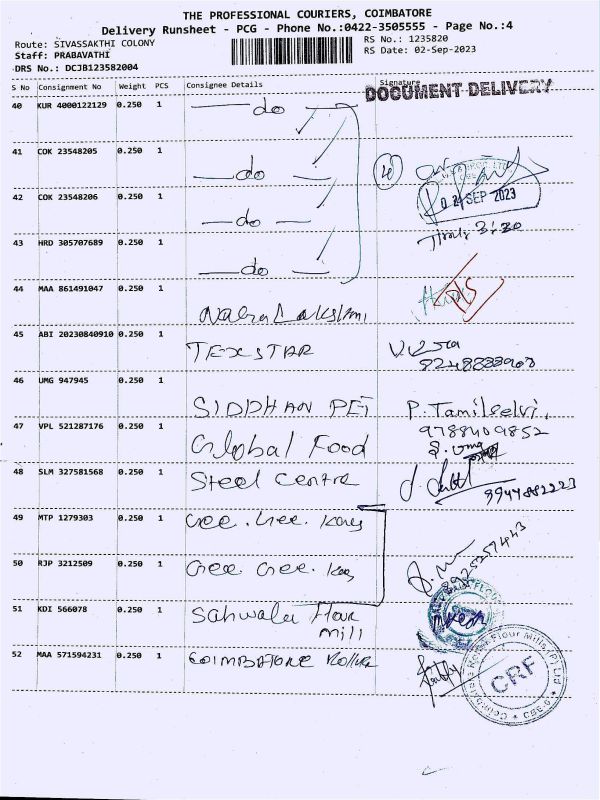 THE PROFESSIONAL COURIERS, COIMBATORE
Delivery Runsheet - PCG - Phone No.:0422-3505555 - Page No.:4
Route: SIVASSAKTHI COLONY
RS No.: 1235820
Staff: PRABAVATHI
RS Date: 02-Sep-2023
DRS No.: DCJB123582004
S No Consignment No Weight PCS Consignee Details Signature
DOCUMENT DELIVERY
40 KUR 4000122129 0.250 1 do
41 COK 23548205 0.250 1 do
42 COK 23548206 0.250 1 do
02 SEP 2023
43 HRD 305707689 0.250 1 do
3:20
44 MAA 861491047 0.250 1 Lakshmi
45 ABI 20230840910 0.250 1 TEXSTAR
8248888908
46 UMG 947945 0.250 1 SIDDHAN PET P. Tamilselvi.
9788409852
47 VPL 521287176 0.250 1 Global Food
48 SLM 327581568 0.250 1 Steel Centre
9944882223
49 MTP 1279303 0.250 1 Gee. Gee. Kay
50 RJP 3212509 0.250 1 Gee. Gee. Kay
8925257443
51 KDI 566078 0.250 1 Sahwala Flour
Mill
52 MAA 571594231 0.250 1 COIMBATORE Roller
Coimbatore Roller Flour Mills (P) Ltd
CRF